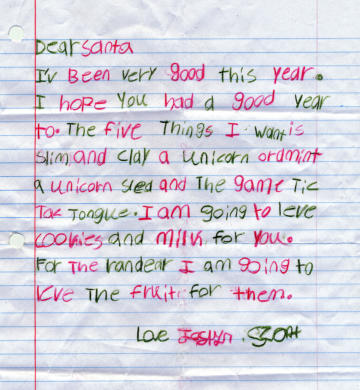 Dear Santa
I'v Been very good this year.
I hope you had a good year
to. The five Things I want is
slim and clay a unicorn ordmint
a unicorn sled and The game Tic
Tac Tongue. I am going to leve
cookies and milk for you.
For The randear I am going to
leve The fruit for them.
Love Joslyn . Scott